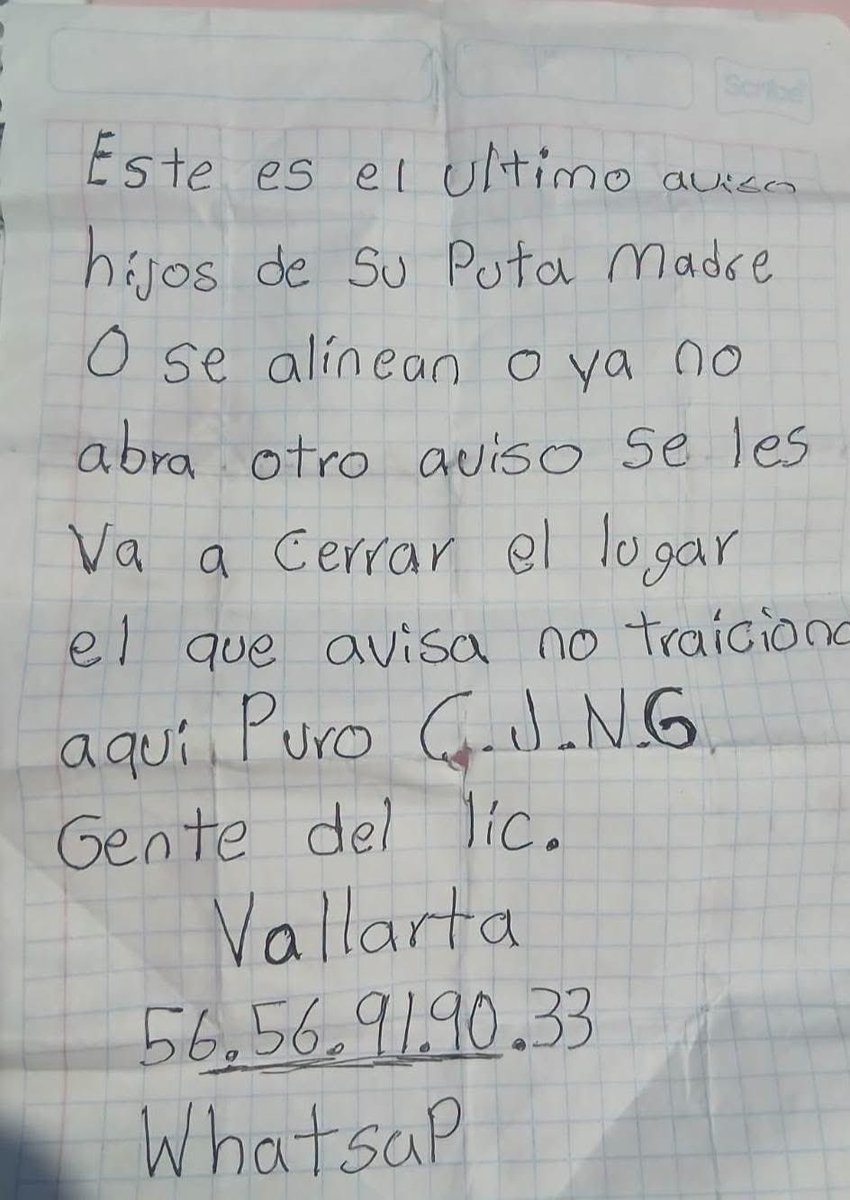 Scribe
Este es el ultimo aviso
hijos de su Puta Madre
O se alinean o ya no
abra otro aviso se les
Va a Cerrar el lugar
el que avisa no traiciona
aqui Puro C.J.N.G.
Gente del lic.
Vallarta
56.56.91.90.33
WhatsaP